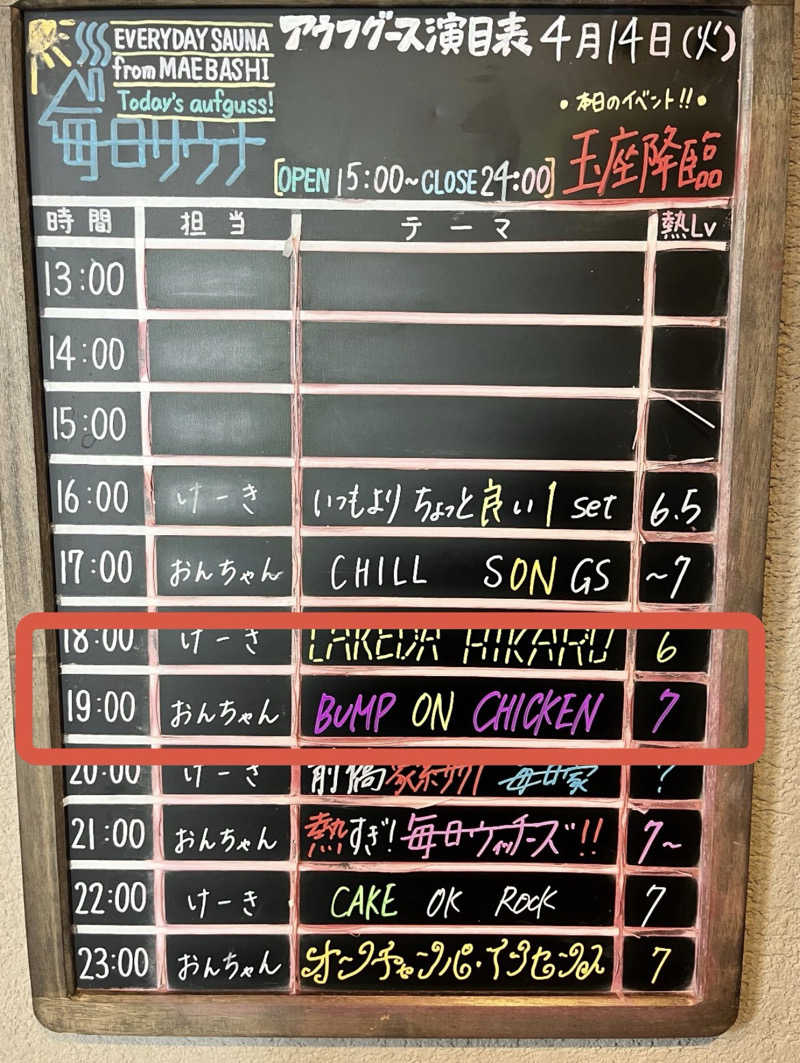 EVERYDAY SAUNA
from MAEBASHI
Today's aufguss!
毎日サウナ
アウフグース演目表 4月14日(火)
•本日のイベント!!•
玉座降臨
[OPEN 15:00~CLOSE 24:00]
時間 担当 テーマ 熱Lv
13:00
14:00
15:00
16:00 けーき いつもよりちょっと良い1set 6.5
17:00 おんちゃん CHILL SONGS ~7
18:00 けーき LAKEDA HIKARU 6
19:00 おんちゃん BUMP ON CHICKEN 7
20:00 けーき 前橋家系サウナ 毎日家 ?
21:00 おんちゃん 熱すぎ!毎日ウィッチーズ!! 7~
22:00 けーき CAKE OK ROCK 7
23:00 おんちゃん オンチャンパ・インセンス 7